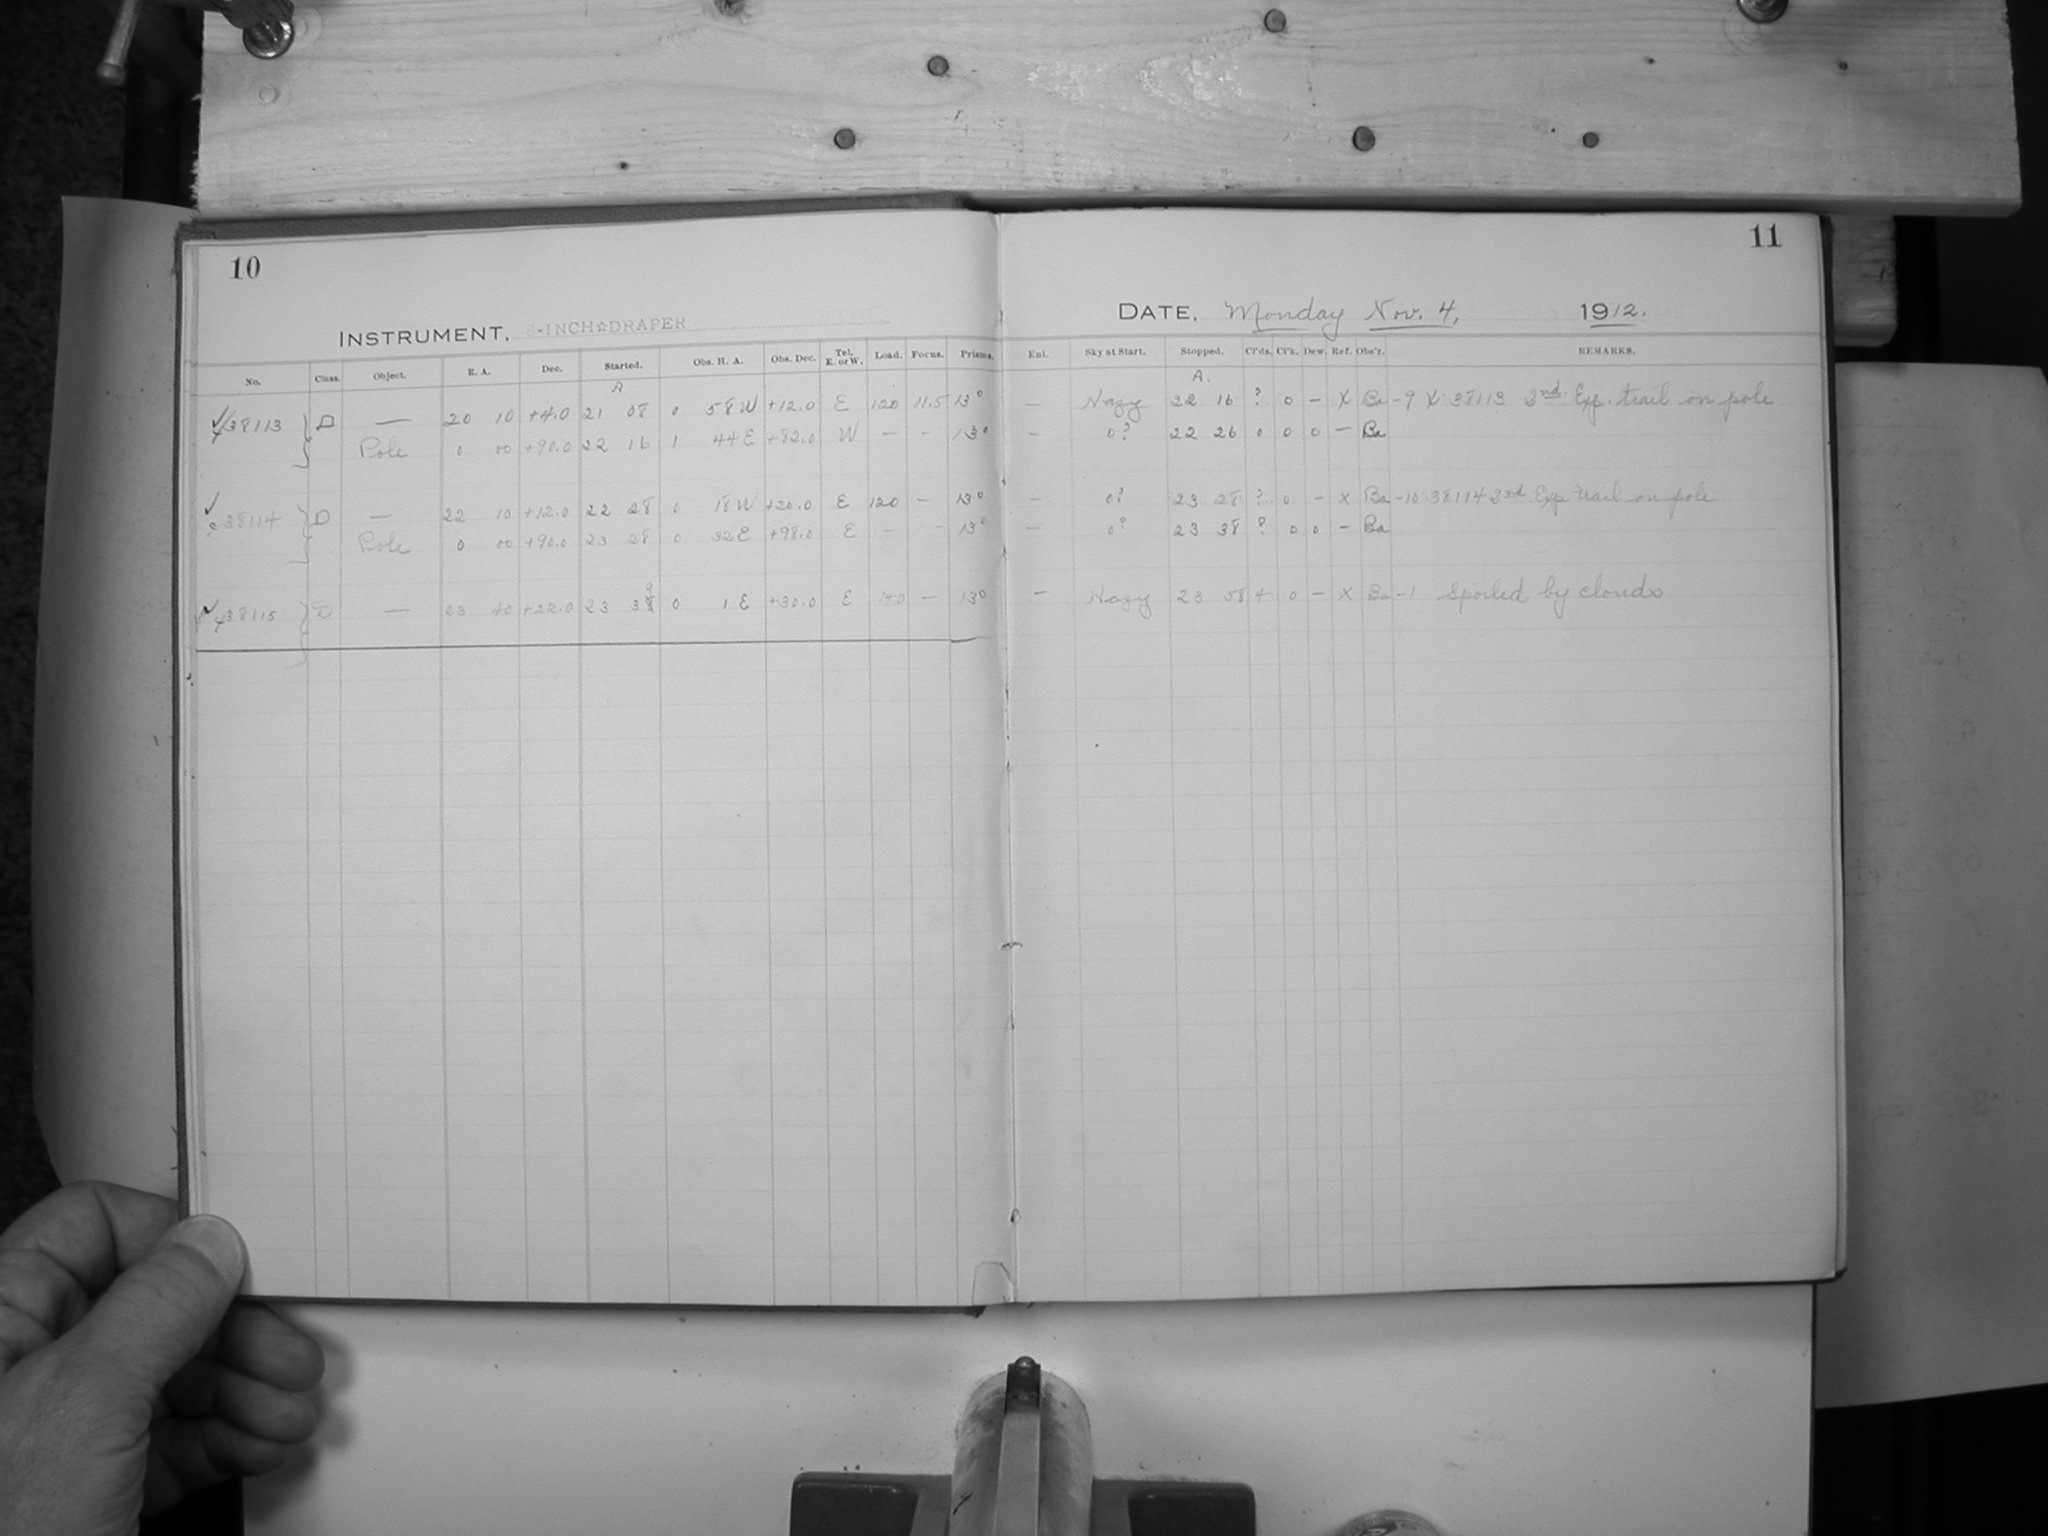 10
11
INSTRUMENT, 8-INCH☆DRAPER
DATE, Monday Nov. 4, 1912.
No. Class. Object. R. A. Dec. Started. Obs. H. A. Obs. Dec. Tel. E. or W. Load. Focus. Prisms. Enl. Sky at Start. Stopped. Cl'ds. Cl'k. Dew. Ref. Obs'r. REMARKS.
A A.
38113 D — 20 10 +4.0 21 08 0 58 W +12.0 E 120 11.5 13° — Hazy 22 16 ? 0 – X Ba -9 X 38113 2nd Exp. trail on pole
Pole 0 00 +90.0 22 16 1 44 E +82.0 W — – 13° – 0? 22 26 0 0 0 – Ba
38114 D — 22 10 +12.0 22 28 0 18 W +20.0 E 120 – 13° — 0? 23 28 ? 0 – X Ba -10 38114 2nd Exp. trail on pole
Pole 0 00 +90.0 23 28 0 32 E +98.0 E – – 13° — 0? 23 38 ? 0 0 – Ba
38115 D — 23 40 +22.0 23 39 0 1 E +30.0 E 140 – 13° — Hazy 23 58 4 0 – X Ba -1 Spoiled by clouds